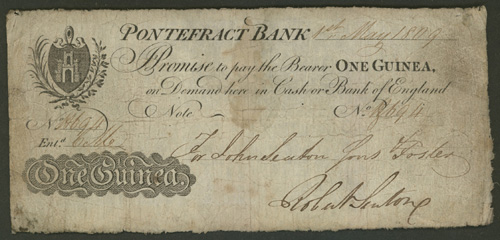 PONTEFRACT BANK 1st May 1809
I Promise to pay the Bearer ONE GUINEA,
on Demand here in Cash or Bank of England
Note No
No
Entd.
For John Seaton Sons & Foster
One Guinea.
Robert Seaton